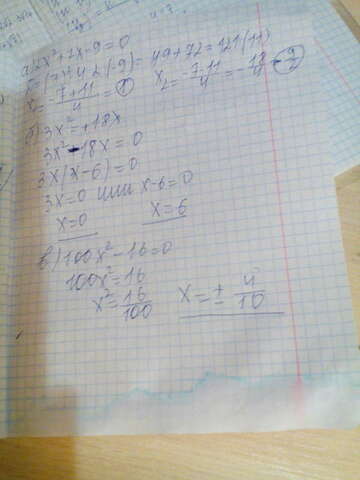 а) 2x²+7x-9=0
x=(7)²-4·2·(-9)=49+72=121(11)
x₁=-7+11/4=1 x₂=-7-11/4=-18/4=-9/2
б) 3x²=+18x
3x²-18x=0
3x(x-6)=0
3x=0 или x-6=0
x=0 x=6
в) 100x²-16=0
100x²=16
x²=16/100 x=±4/10